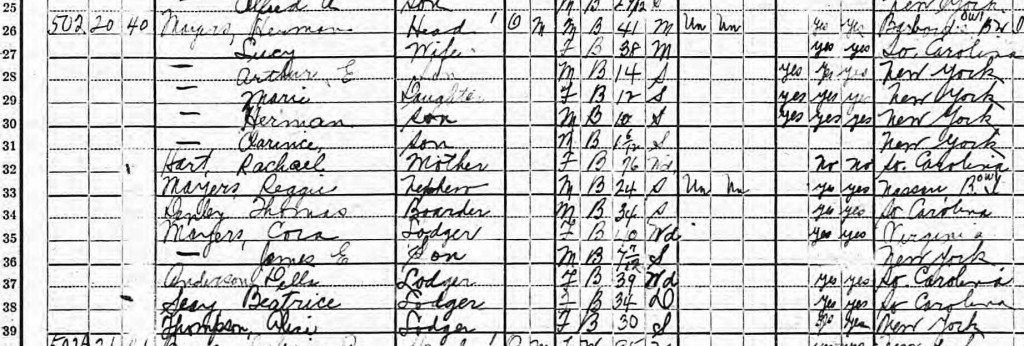 25 Alfred Son M B New York
26 502 20 40 Mayers, Herman Head 1 O M M B 41 M Un Un yes yes B.W.
27 — Lucy Wife F B 38 M yes yes So. Carolina
28 — Arthur E Son M B 14 S yes yes yes New York
29 — Marie Daughter F B 12 S yes yes yes New York
30 — Herman Son M B 10 S yes yes yes New York
31 — Clarince, Son M B S New York
32 Hart, Rachael Mother F B 76 Wd No No So. Carolina
33 Mayers, Reggie Nephew M B 24 S Un Un yes yes Nassau B.W.I
34 Thomas Boarder M B 34 S yes yes So Carolina
35 Mayers, Cora Lodger F B Wd yes yes Virginia
36 — James E Son M B S New York
37 Anderson, Della Lodger F B 39 Wd yes yes So. Carolina
38 Seay Beatrice Lodger F B 34 D yes yes So Carolina
39 Thompson, Alice Lodger F B 30 S yes yes New York